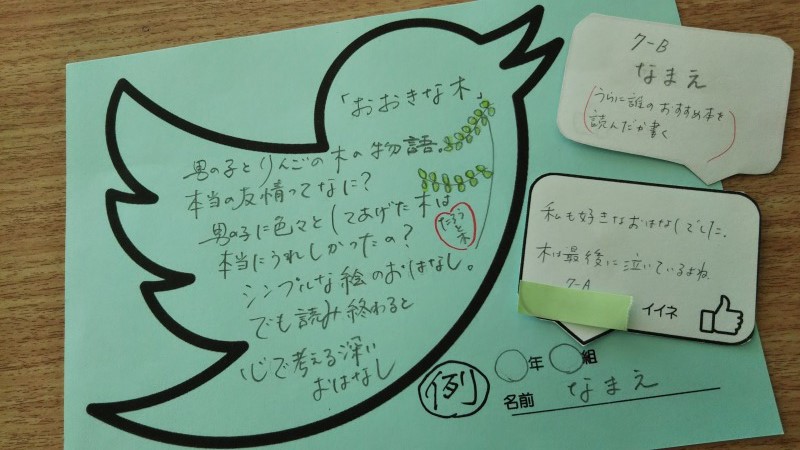 「おおきな木」
男の子とりんごの木の物語。
本当の友情ってなに?
男の子に色々としてあげた木は
本当にうれしかったの?
シンプルな絵のおはなし。
でも読み終わると
心で考える深い
おはなし
例
○年○組
名前 なまえ
7-B
なまえ
(うらに誰のおすすめ本を
読んだか書く)
私も好きなおはなしでした。
木は最後に泣いているよね
7-A
イイネ